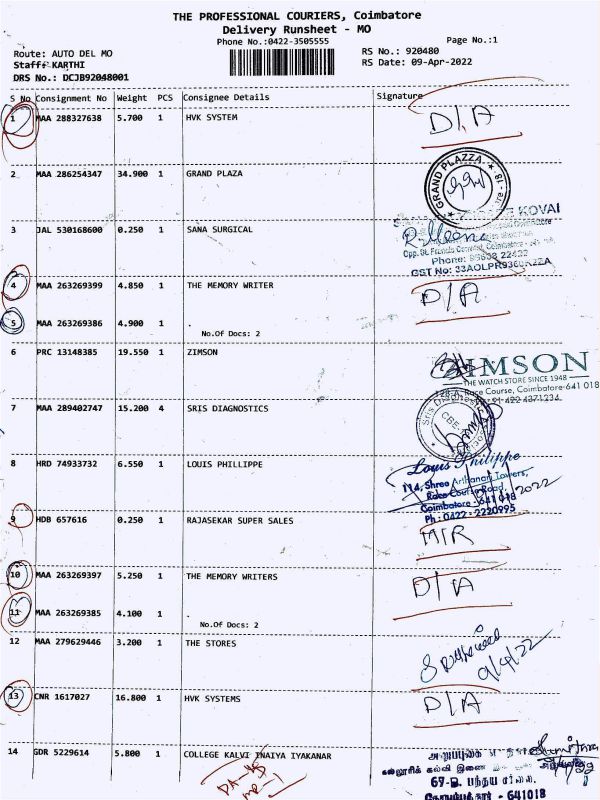 THE PROFESSIONAL COURIERS, Coimbatore
Delivery Runsheet - MO
Phone No.:0422-3505555
Page No.:1
Route: AUTO DEL MO
RS No.: 920480
Staff: KARTHI
RS Date: 09-Apr-2022
DRS No.: DCJB92048001
S No Consignment No Weight PCS Consignee Details Signature
1 MAA 288327638 5.700 1 HVK SYSTEM D/A
2 MAA 286254347 34.900 1 GRAND PLAZA
GRAND PLAZZA
KOVAI
3 JAL 530168600 0.250 1 SANA SURGICAL
Opp. St. Francis Convent, Coimbatore
Phone:
GST No:
4 MAA 263269399 4.850 1 THE MEMORY WRITER D/A
5 MAA 263269386 4.900 1 .
No.Of Docs: 2
6 PRC 13148385 19.550 1 ZIMSON
ZIMSON
THE WATCH STORE SINCE 1948
Race Course, Coimbatore-641 018
91-422 4371234
7 MAA 289402747 15.200 4 SRIS DIAGNOSTICS
Sris Diagnostics
CBE
8 HRD 74933732 6.550 1 LOUIS PHILLIPPE
Louis Philippe
114, Shree Arthanari Towers,
Race Course Road,
Coimbatore - 641 018
Ph : 0422 - 2220995
9 HDB 657616 0.250 1 RAJASEKAR SUPER SALES
10 MAA 263269397 5.250 1 THE MEMORY WRITERS D/A
11 MAA 263269385 4.100 1 .
No.Of Docs: 2
12 MAA 279629446 3.200 1 THE STORES
9/4/22
13 CNR 1617027 16.800 1 HVK SYSTEMS D/A
14 GDR 5229614 5.800 1 COLLEGE KALVI INAIYA IYAKANAR
கல்லூரிக் கல்வி இணை
67-D, பந்தய சாலை,
கோயம்புத்தூர் - 641018